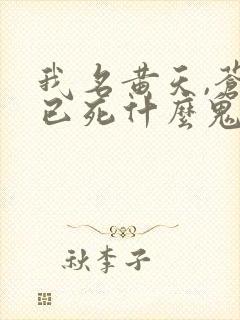 我名黄天,蒼
已死什麼鬼
秋李子